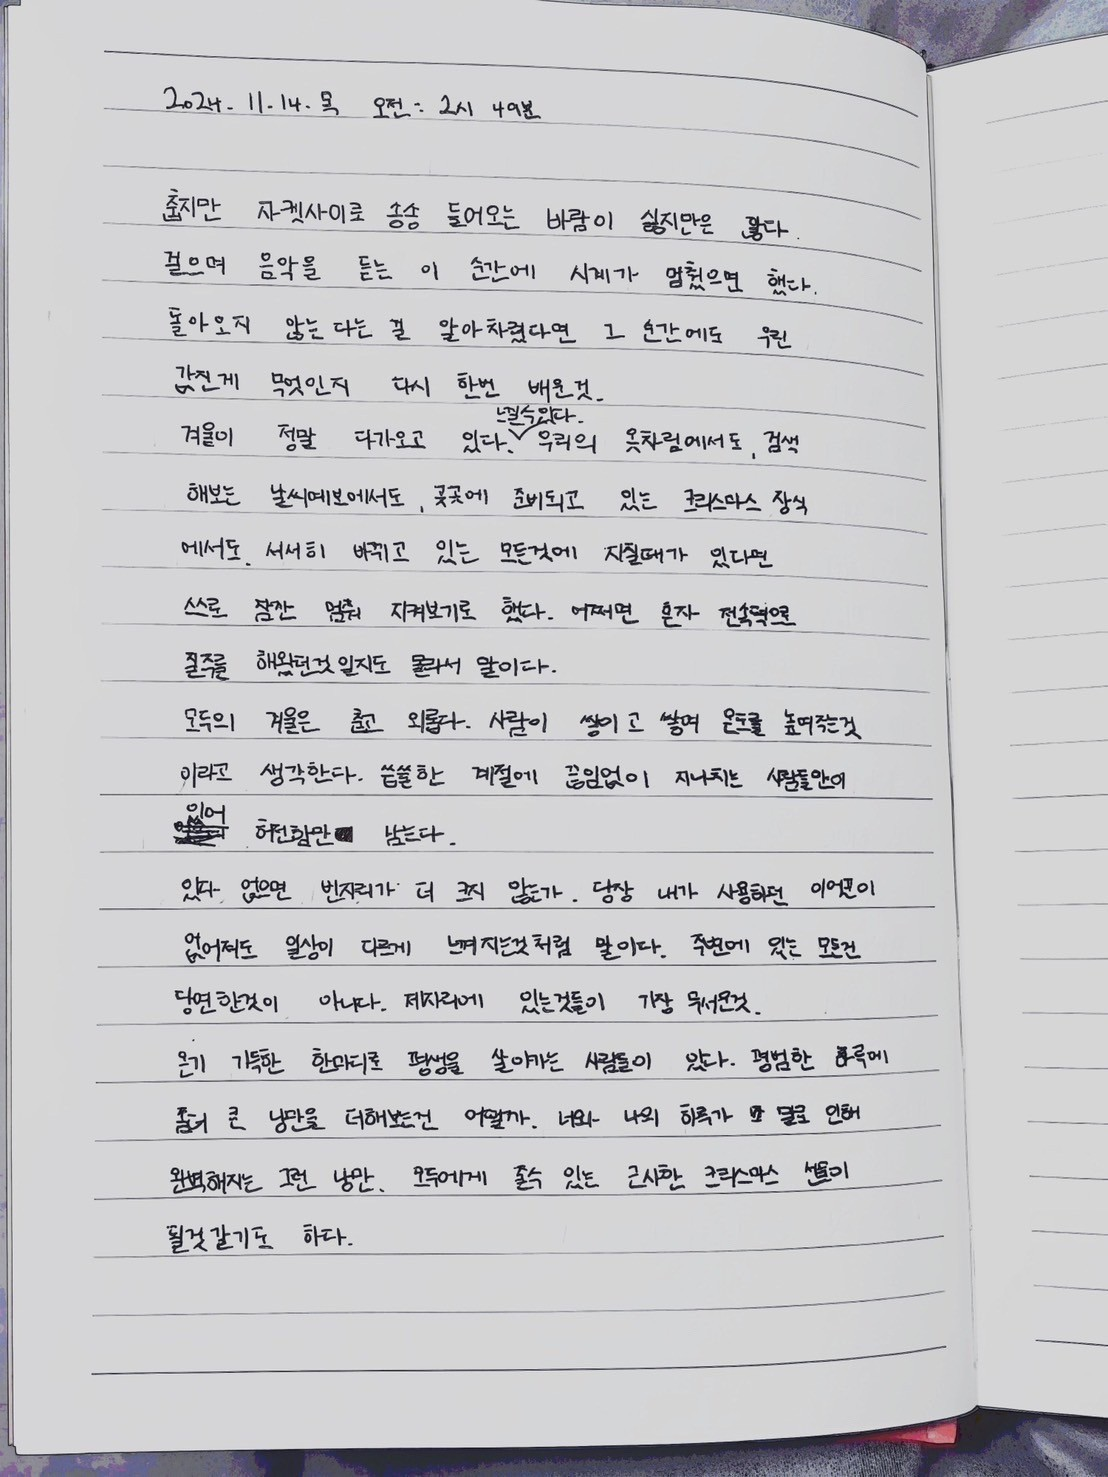 2024. 11. 14. 목 오전 : 2시 49분
춥지만 자켓사이로 송송 들어오는 바람이 싫지만은 않다.
걸으며 음악을 듣는 이 순간에 시계가 멈췄으면 했다.
돌아오지 않는다는 걸 알아차렸다면 그 순간에도 우린
값진게 무엇인지 다시 한번 배운것.
느낄수있다.
겨울이 정말 다가오고 있다. 우리의 옷차림에서도, 검색
해보는 날씨예보에서도, 곳곳에 준비되고 있는 크리스마스 장식
에서도. 서서히 바뀌고 있는 모든것에 지칠때가 있다면
스스로 잠깐 멈춰 지켜보기로 했다. 어쩌면 혼자 전속력으로
질주를 해왔던것일지도 몰라서 말이다.
모두의 겨울은 춥고 외롭다. 사람이 쌓이고 쌓여 온도를 높여주는것
이라고 생각한다. 씁쓸한 계절에 끊임없이 지나치는 사람들만이
있어 허전함만 남는다.
있다 없으면 빈자리가 더 크지 않는가. 당장 내가 사용하던 이어폰이
없어져도 일상이 다르게 느껴지는것처럼 말이다. 주변에 있는 모든건
당연한것이 아니다. 제자리에 있는것들이 가장 무서운것.
온기 가득한 한마디로 평생을 살아가는 사람들이 있다. 평범한 하루에
좀더 큰 낭만을 더해보는건 어떨까. 너와 나의 하루가 말로 인해
완벽해지는 그런 낭만. 모두에게 줄수 있는 근사한 크리스마스 선물이
될것같기도 하다.